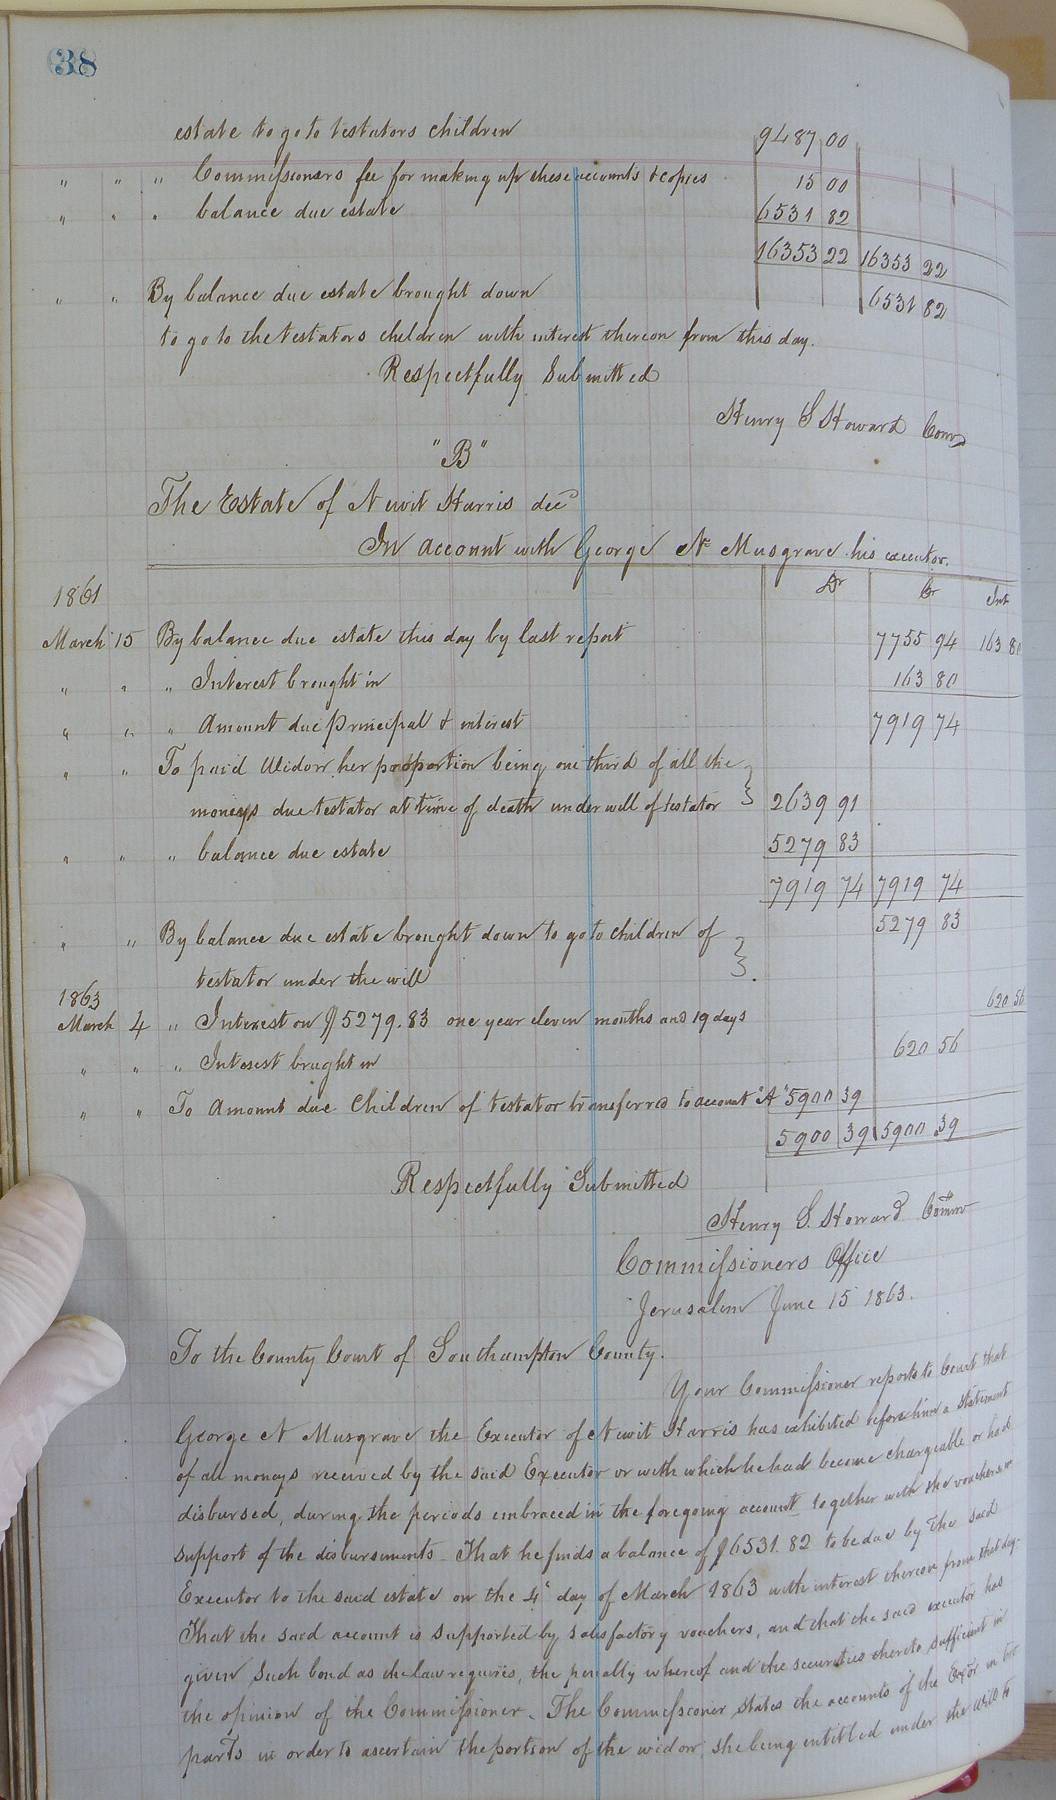 638
estate to go to testators children 9487 00
" " " Commissioners fee for making up these accounts & copies 15 00
" " " balance due estate 6531 82
16353 22 16353 22
" " By balance due estate brought down 6531 82
to go to the testators children with interest thereon from this day.
Respectfully Submitted
Henry S Howard Comr
"B"
The Estate of Newit Harris decd
In account with George N Musgrave his executor.
1861 Dr Cr Int
March 15 By balance due estate this day by last report 7755 94 163 80
" " " Interest brought in 163 80
" " " Amount due principal & interest 7919 74
" " To paid Widow her proportion being one third of all the
moneys due testator at time of death under will of testator 2639 91
" " " balance due estate 5279 83
7919 74 7919 74
" " By balance due estate brought down to go to children of 5279 83
testator under the will
1863
March 4 " Interest on $5279.83 one year eleven months and 19 days 620 56
" " " Interest brught in 620 56
" " To Amount due Children of testator transferred to account "A" 5900 39
5900 39 5900 39
Respectfully Submitted
Henry S. Howard Commr
Commissioners Office
Jerusalem June 15 1863.
To the County Court of Southampton County.
Your Commissioner reports to Court that
George N Musgrave the Executor of Newit Harris has exhibited before him a statement
of all moneys received by the said Executor or with which he had become chargeable or had
disbursed, during the periods embraced in the foregoing account together with the vouchers in
support of the disbursements. That he finds a balance of $6531.82 to be due by the said
Executor to the said estate on the 4" day of March 1863 with interest thereon from that day.
That the said account is supported by satisfactory vouchers, and that the said executor has
given such bond as the law requires, the penalty whereof and the securities thereto sufficient in
the opinion of the Commissioner. The Commissioner states the accounts of the Exor in two
parts in order to ascertain the portion of the widow, she being entitled under the will to